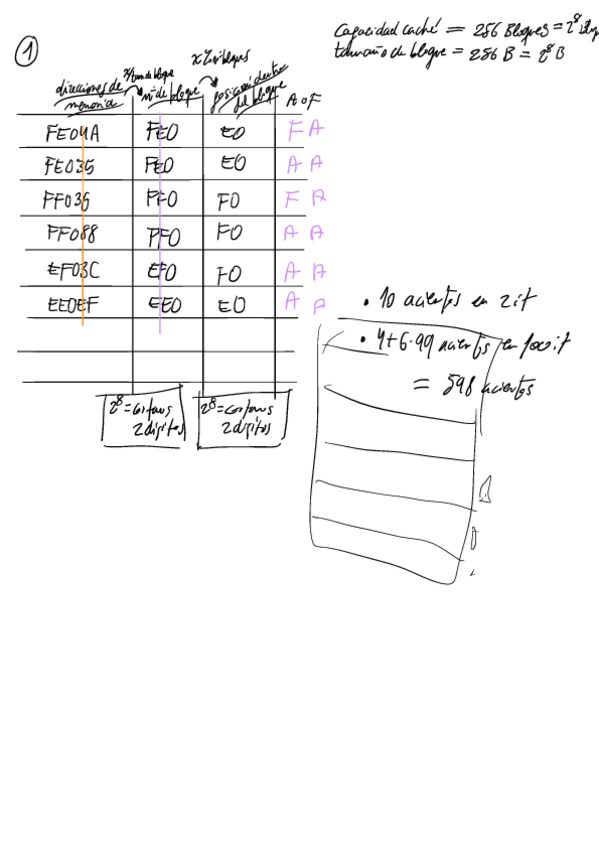 Capacidad caché = 256 Bloques = 2^8
tamaño de bloque = 256 B = 2^8 B
1
x % nº bloques
direcciones de memoria
nº de bloque
posición dentro del bloque
A o F
FE04A FE0 E0 F A
FE035 FE0 E0 A A
FF036 FF0 F0 F A
FF088 FF0 F0 A A
EF03C EF0 F0 A A
EE0EF EE0 E0 A A
• 10 aciertos en 2 it
• 4+6·99 aciertos en 100 it
= 598 aciertos
2^8 = cortamos 2 dígitos
2^8 = cortamos 2 dígitos